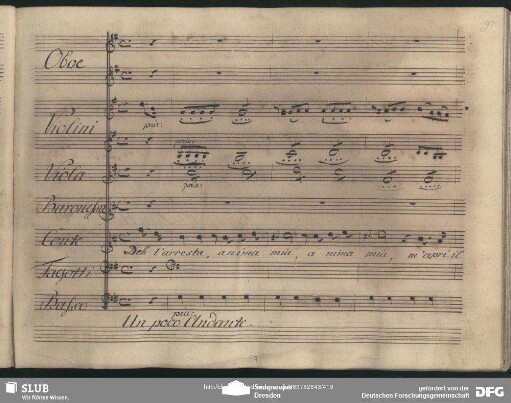 97
Oboe
Violini
pia:
pia:
Viola
pia:
Baronessa
Conte
Deh t'arresta, anima mia, a nima mia, m'apri il
Fagotti
Basso
pia:
Un poco Andante.
SLUB
Wir führen Wissen.
Dresden
gefördert von der
Deutschen Forschungsgemeinschaft
DFG